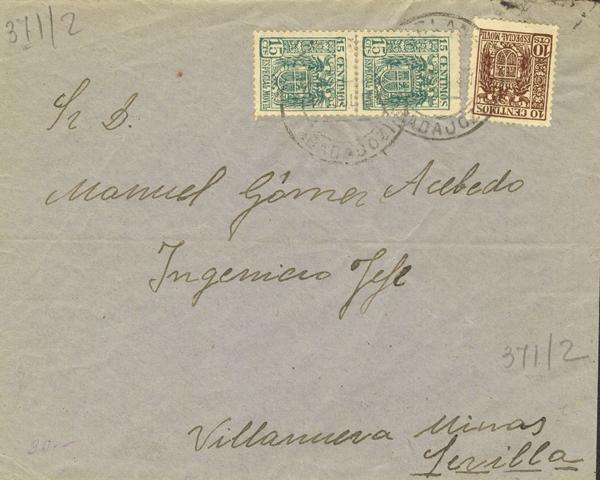 371/2
15 CTS 15 CTS
ESPECIAL MOVIL ESPECIAL MOVIL
15 CENTIMOS 15 CENTIMOS
10 CTS
ESPECIAL MOVIL
10 CENTIMOS
BADAJOZ
BADAJOZ
Sr D.
Manuel Gómez Acebedo
Ingeniero Jefe
371/2
Villanueva Minas
Sevilla